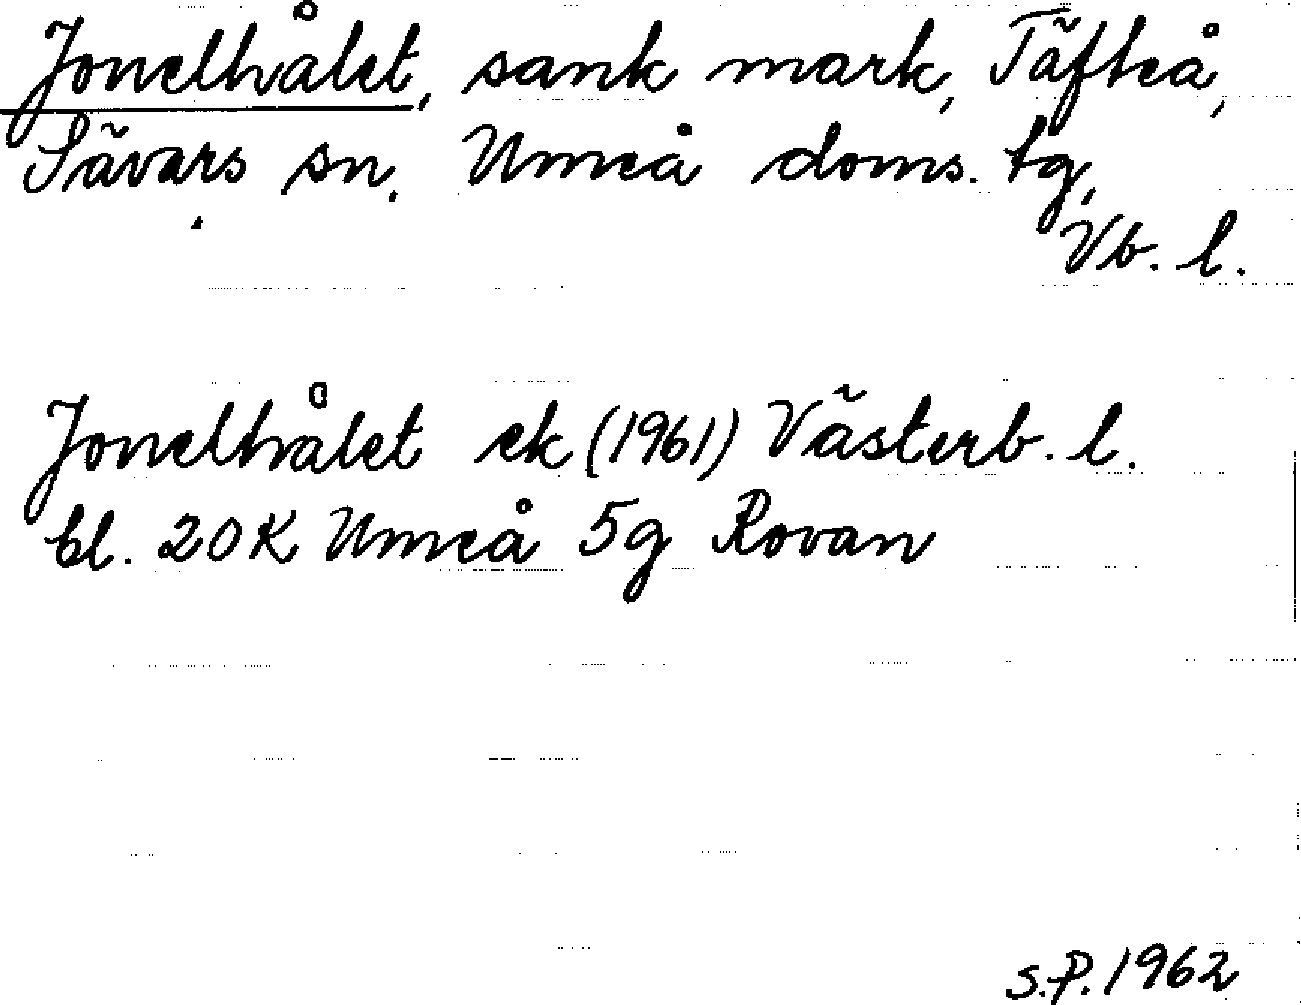 Jonelhålet, sank mark, Täfteå,
Sävars sn. Umeå doms. tg,
Vb. l.
Jonelhålet ek (1961) Västerb. l.
bl. 20K Umeå 5g Rovan
S.P. 1962